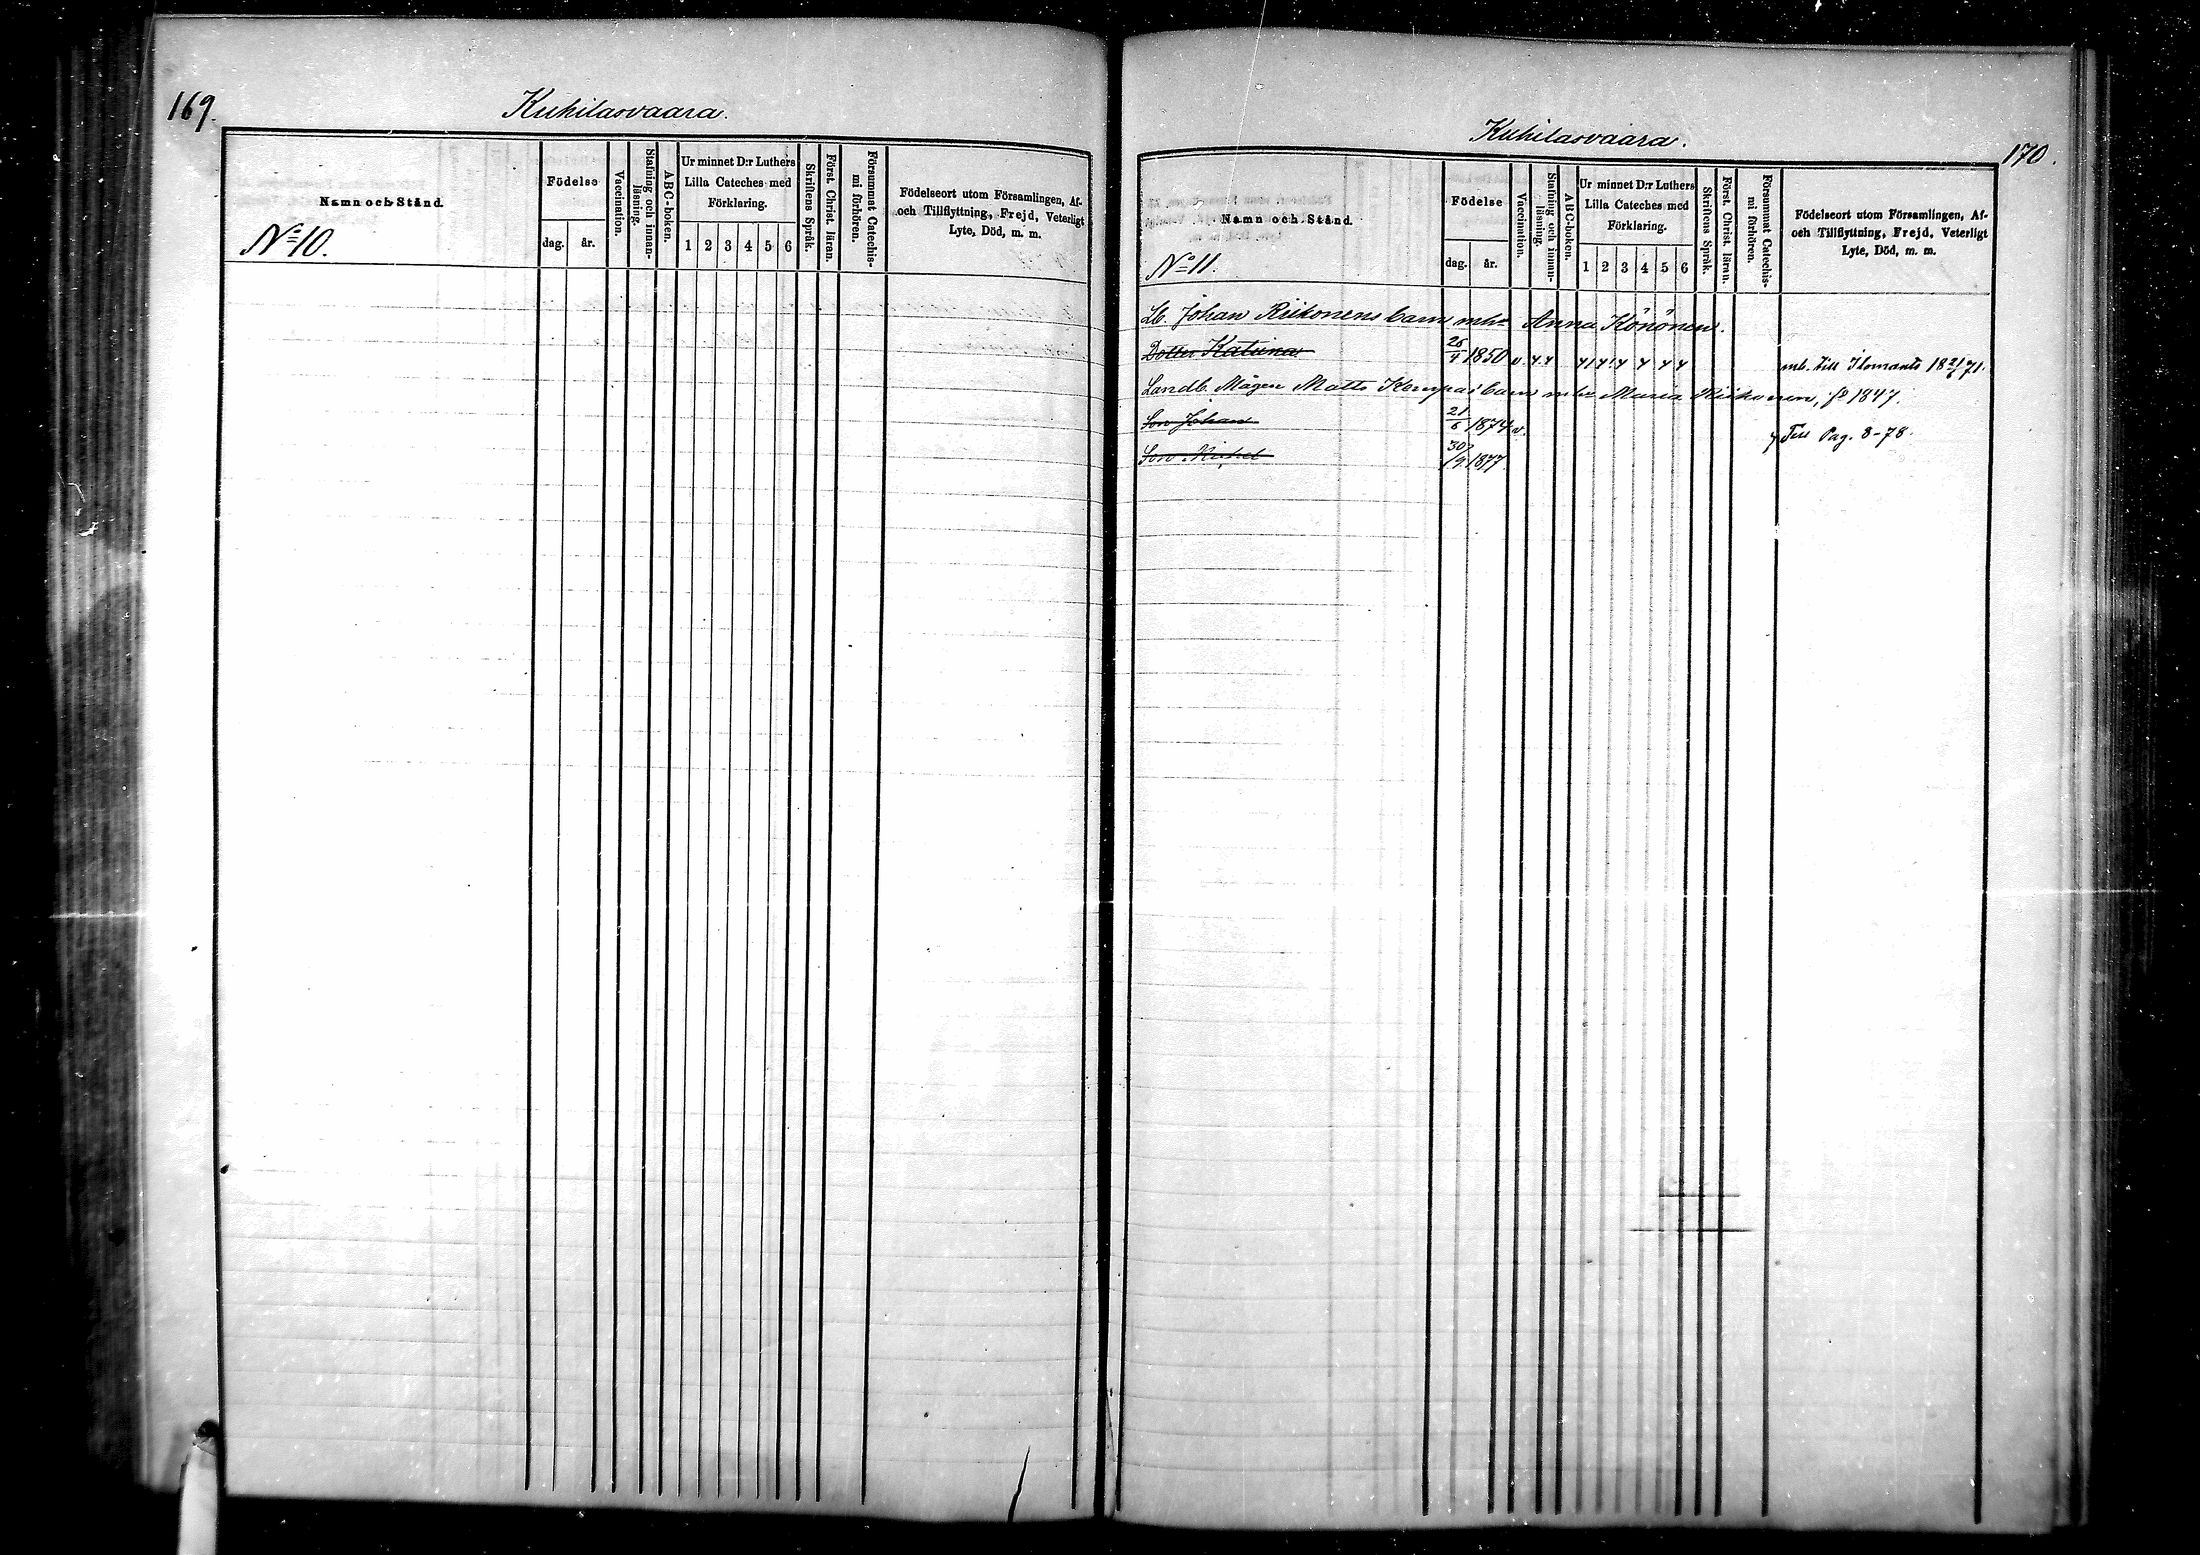 169.
Kuhilasvaara.
Namn och Stånd.
No 10.
Födelse
dag. år.
Vaccination.
Stafning och innan-läsning.
ABC-boken.
Ur minnet D:r Luthers
Lilla Cateches med
Förklaring.
1 2 3 4 5 6
Skriftens Språk.
Först. Christ. läran.
Försummat Catechis-
mi förhören.
Födelseort utom Församlingen, Af-
och Tillflyttning, Frejd, Veterligt
Lyte, Död, m. m.
Kuhilasvaara.
170.
Namn och Stånd.
No 11.
Födelse
dag. år.
Vaccination.
Stafning och innan-
läsning.
ABC-boken.
Ur minnet D:r Luthers
Lilla Cateches med
Förklaring.
1 2 3 4 5 6
Skriftens Språk.
Först. Christ. läran.
Försummat Catechis-
mi förhören.
Födelseort utom Församlingen, Af-
och Tillflyttning, Frejd, Veterligt
Lyte, Död, m. m.
Lb. Johan Riikonens barn mhu Anna Könönen.
Dotter Katrina 1850 v. mb. till Ilomants 18 71.
Landb. Mågen Matts barn mhu Maria Riikonen, fd 1847.
Son Johan 21 1874 v. Till Pag. 8-78.
Son Mikel 30/9 1877.